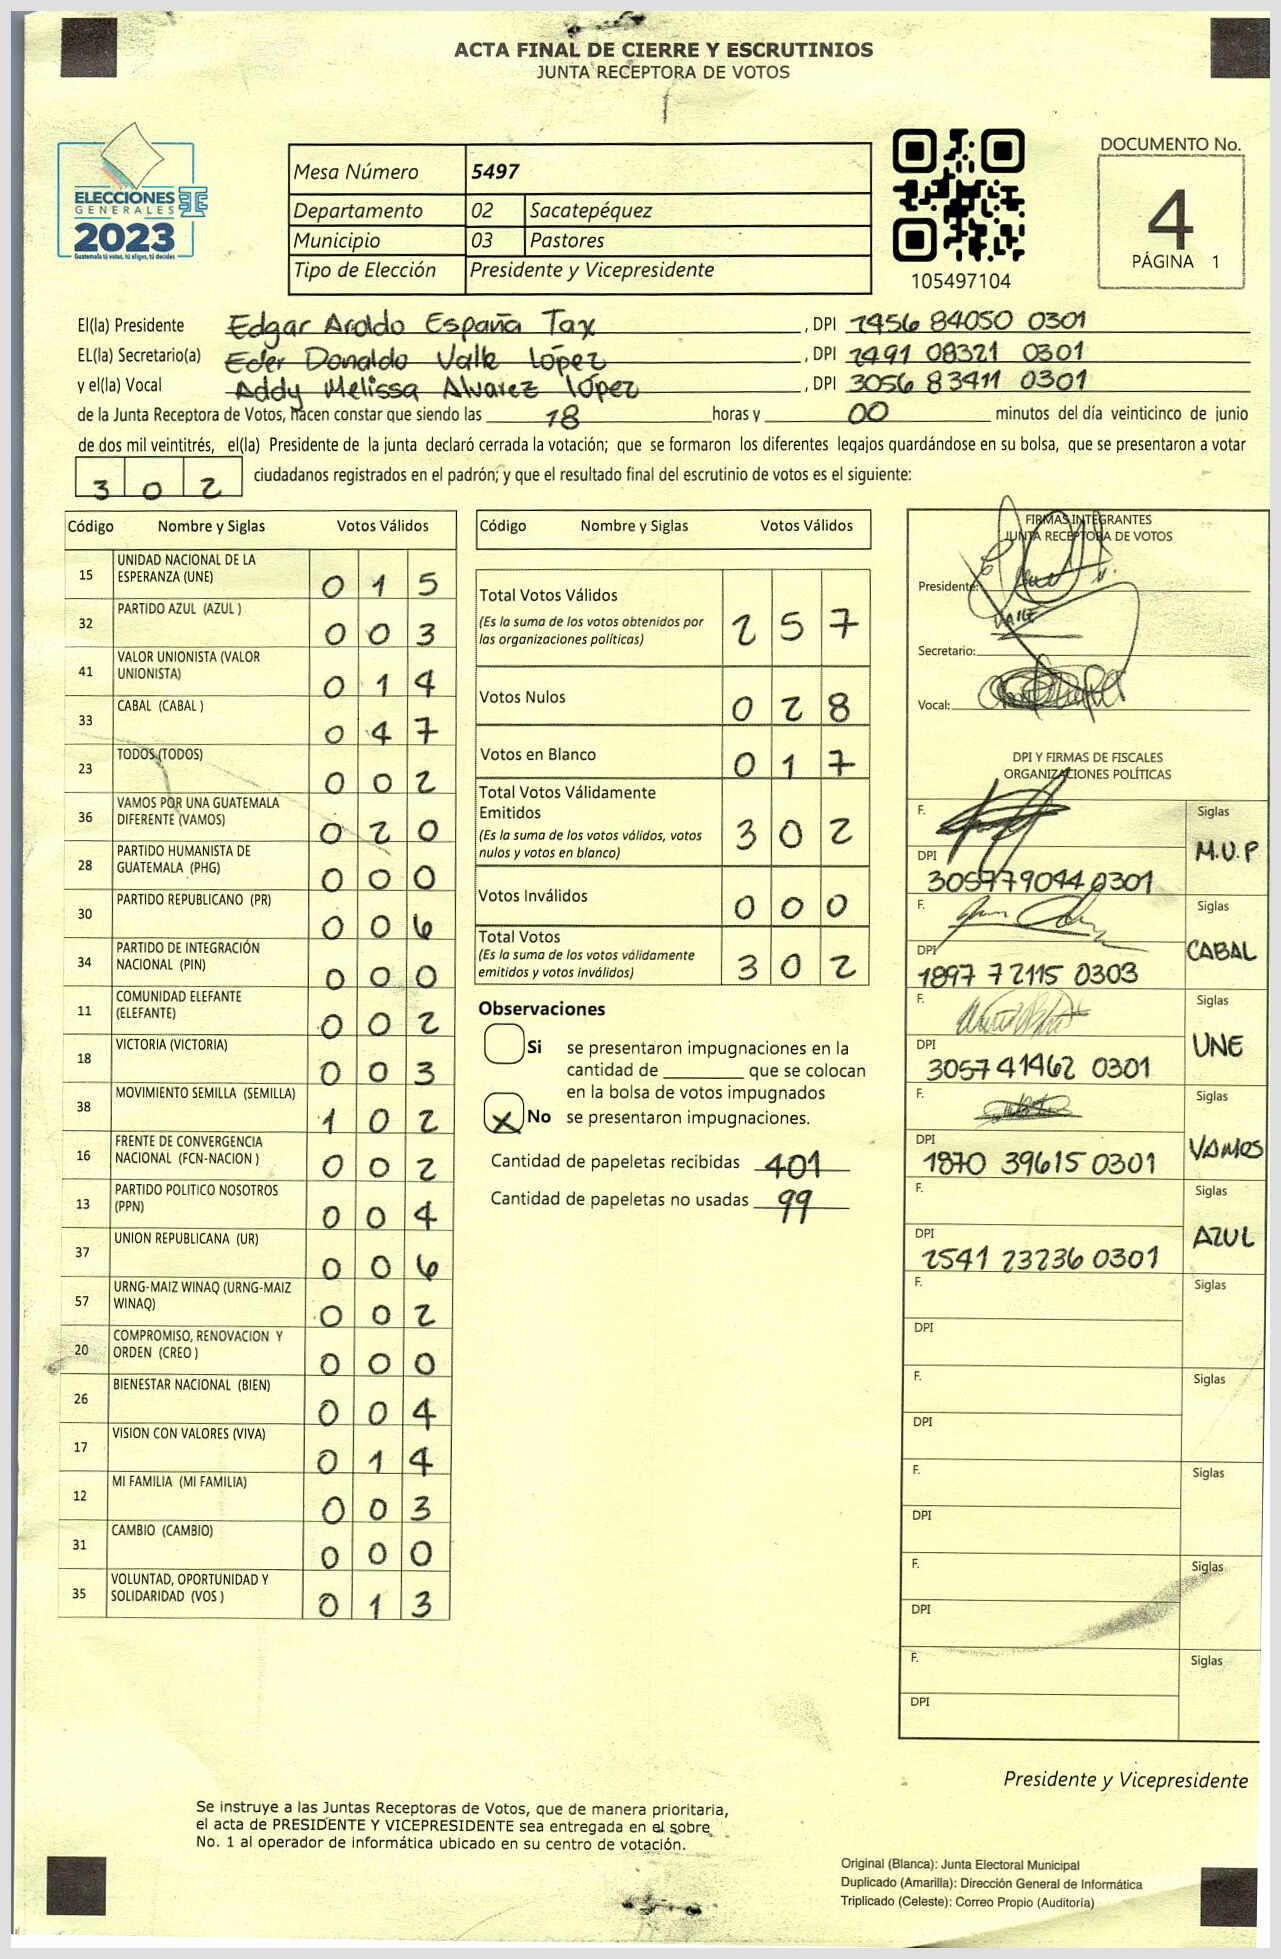 ACTA FINAL DE CIERRE Y ESCRUTINIOS
JUNTA RECEPTORA DE VOTOS
ELECCIONES
GENERALES
2023
Guatemala tú votas, tú eliges, tú decides
Mesa Número 5497
Departamento 02 Sacatepéquez
Municipio 03 Pastores
Tipo de Elección Presidente y Vicepresidente
105497104
DOCUMENTO No.
4
PÁGINA 1
El(la) Presidente Edgar Aroldo España Tax , DPI 2456 84050 0301
EL(la) Secretario(a) Eder Donaldo Valle López , DPI 2491 08321 0301
y el(la) Vocal Addy Melissa Alvarez López , DPI 3056 83411 0301
de la Junta Receptora de Votos, hacen constar que siendo las 18 horas y 00 minutos del día veinticinco de junio
de dos mil veintitrés, el(la) Presidente de la junta declaró cerrada la votación; que se formaron los diferentes legajos quardándose en su bolsa, que se presentaron a votar
302 ciudadanos registrados en el padrón; y que el resultado final del escrutinio de votos es el siguiente:
Código Nombre y Siglas Votos Válidos
15 UNIDAD NACIONAL DE LA ESPERANZA (UNE) 015
32 PARTIDO AZUL (AZUL ) 003
41 VALOR UNIONISTA (VALOR UNIONISTA) 014
33 CABAL (CABAL ) 047
23 TODOS (TODOS) 002
36 VAMOS POR UNA GUATEMALA DIFERENTE (VAMOS) 020
28 PARTIDO HUMANISTA DE GUATEMALA (PHG) 000
30 PARTIDO REPUBLICANO (PR) 006
34 PARTIDO DE INTEGRACIÓN NACIONAL (PIN) 000
11 COMUNIDAD ELEFANTE (ELEFANTE) 002
18 VICTORIA (VICTORIA) 003
38 MOVIMIENTO SEMILLA (SEMILLA) 102
16 FRENTE DE CONVERGENCIA NACIONAL (FCN-NACION ) 002
13 PARTIDO POLITICO NOSOTROS (PPN) 004
37 UNION REPUBLICANA (UR) 006
57 URNG-MAIZ WINAQ (URNG-MAIZ WINAQ) 002
20 COMPROMISO, RENOVACION Y ORDEN (CREO ) 000
26 BIENESTAR NACIONAL (BIEN) 004
17 VISION CON VALORES (VIVA) 014
12 MI FAMILIA (MI FAMILIA) 003
31 CAMBIO (CAMBIO) 000
35 VOLUNTAD, OPORTUNIDAD Y SOLIDARIDAD (VOS ) 013
Código Nombre y Siglas Votos Válidos
Total Votos Válidos 257
(Es la suma de los votos obtenidos por
las organizaciones políticas)
Votos Nulos 028
Votos en Blanco 017
Total Votos Válidamente
Emitidos 302
(Es la suma de los votos válidos, votos
nulos y votos en blanco)
Votos Inválidos 000
Total Votos 302
(Es la suma de los votos válidamente
emitidos y votos inválidos)
Observaciones
Si se presentaron impugnaciones en la
cantidad de ________ que se colocan
en la bolsa de votos impugnados
X No se presentaron impugnaciones.
Cantidad de papeletas recibidas 401
Cantidad de papeletas no usadas 99
FIRMAS INTEGRANTES
JUNTA RECEPTORA DE VOTOS
Presidente:
VALLE
Secretario:
Vocal:
DPI Y FIRMAS DE FISCALES
ORGANIZACIONES POLÍTICAS
F. Siglas
M.U.P
DPI 305779044 0301
F. Siglas
CABAL
DPI 1897 72115 0303
F. Siglas
UNE
DPI 3057 41462 0301
F. Siglas
VAMOS
DPI 1870 39615 0301
F. Siglas
AZUL
DPI 2541 23236 0301
F. Siglas
DPI
F. Siglas
DPI
F. Siglas
DPI
F. Siglas
DPI
F. Siglas
DPI
Presidente y Vicepresidente
Se instruye a las Juntas Receptoras de Votos, que de manera prioritaria,
el acta de PRESIDENTE Y VICEPRESIDENTE sea entregada en el sobre
No. 1 al operador de informática ubicado en su centro de votación.
Original (Blanca): Junta Electoral Municipal
Duplicado (Amarilla): Dirección General de Informática
Triplicado (Celeste): Correo Propio (Auditoría)